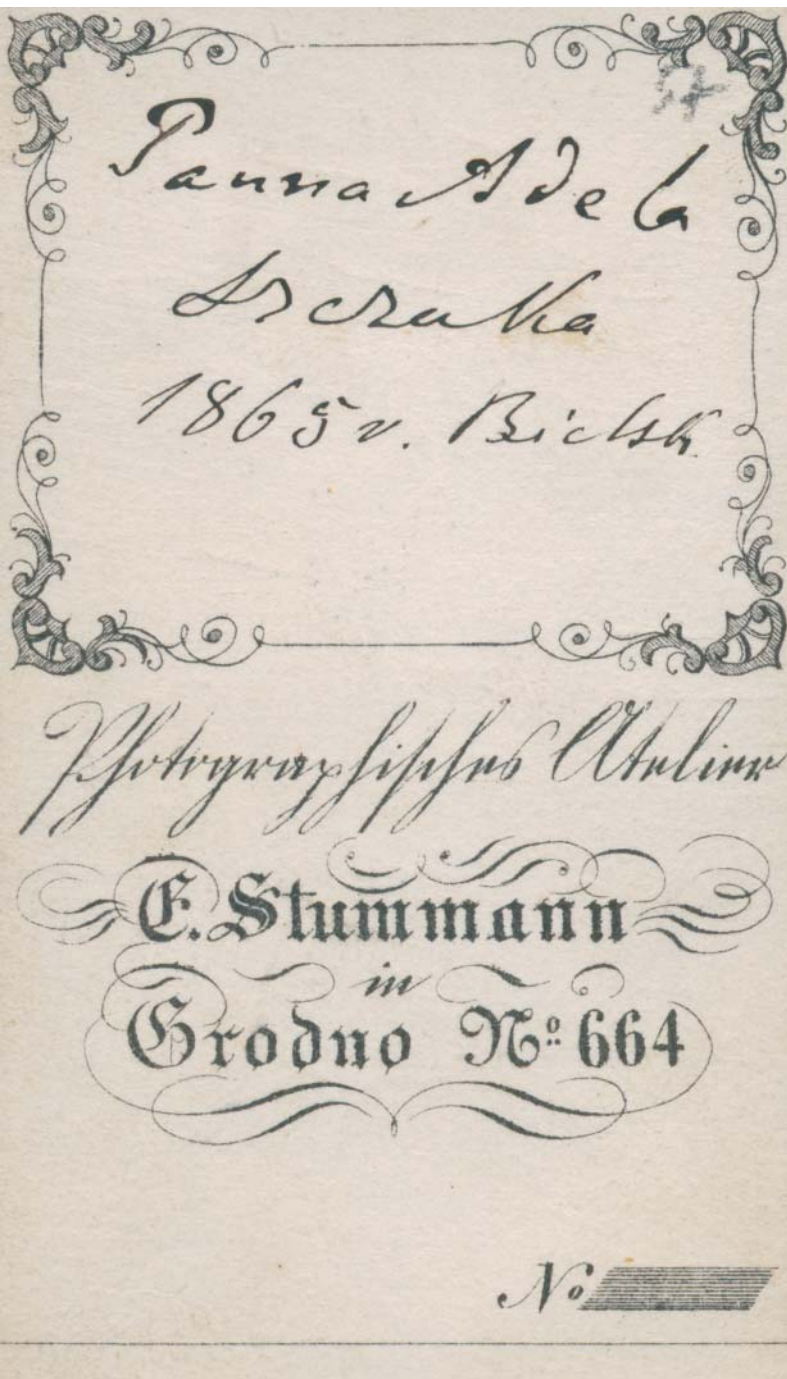 Panna Adela
Szczuka
1865 r. Bielsk
Photographisches Atelier
E. Stummann
in
Grodno No. 664
No